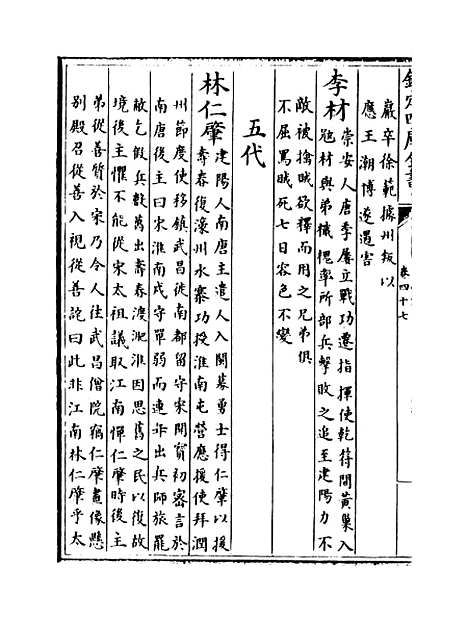 欽定四庫全書
卷四十七
巖卒徐範據州叛以
應王潮博遂遇害
李材崇安人唐季屢立戰功遷指揮使乾符間黃巢入
冦材與弟櫬槐率所部兵擊敗之追至建陽力不
敵被擒賊欲釋而用之兄弟俱
不屈罵賊死七日容色不變
五代
林仁肇建陽人南唐主遣人入閩募勇士得仁肇以援
壽春復濠州水寨功授淮南屯營應援使拜潤
州節度使移鎮武昌徙南都留守宋開寶初密言於
南唐後主曰宋淮南戍守單弱而連年出兵師旅罷
敝乞假兵數萬出壽春渡淝淮因思舊之民以復故
境後主懼不能從宋太祖議取江南憚仁肇時後主
弟從善質於宋乃令人往武昌僧院竊仁肇畫像懸
别殿召從善入視從善詫曰此非江南林仁肇乎太